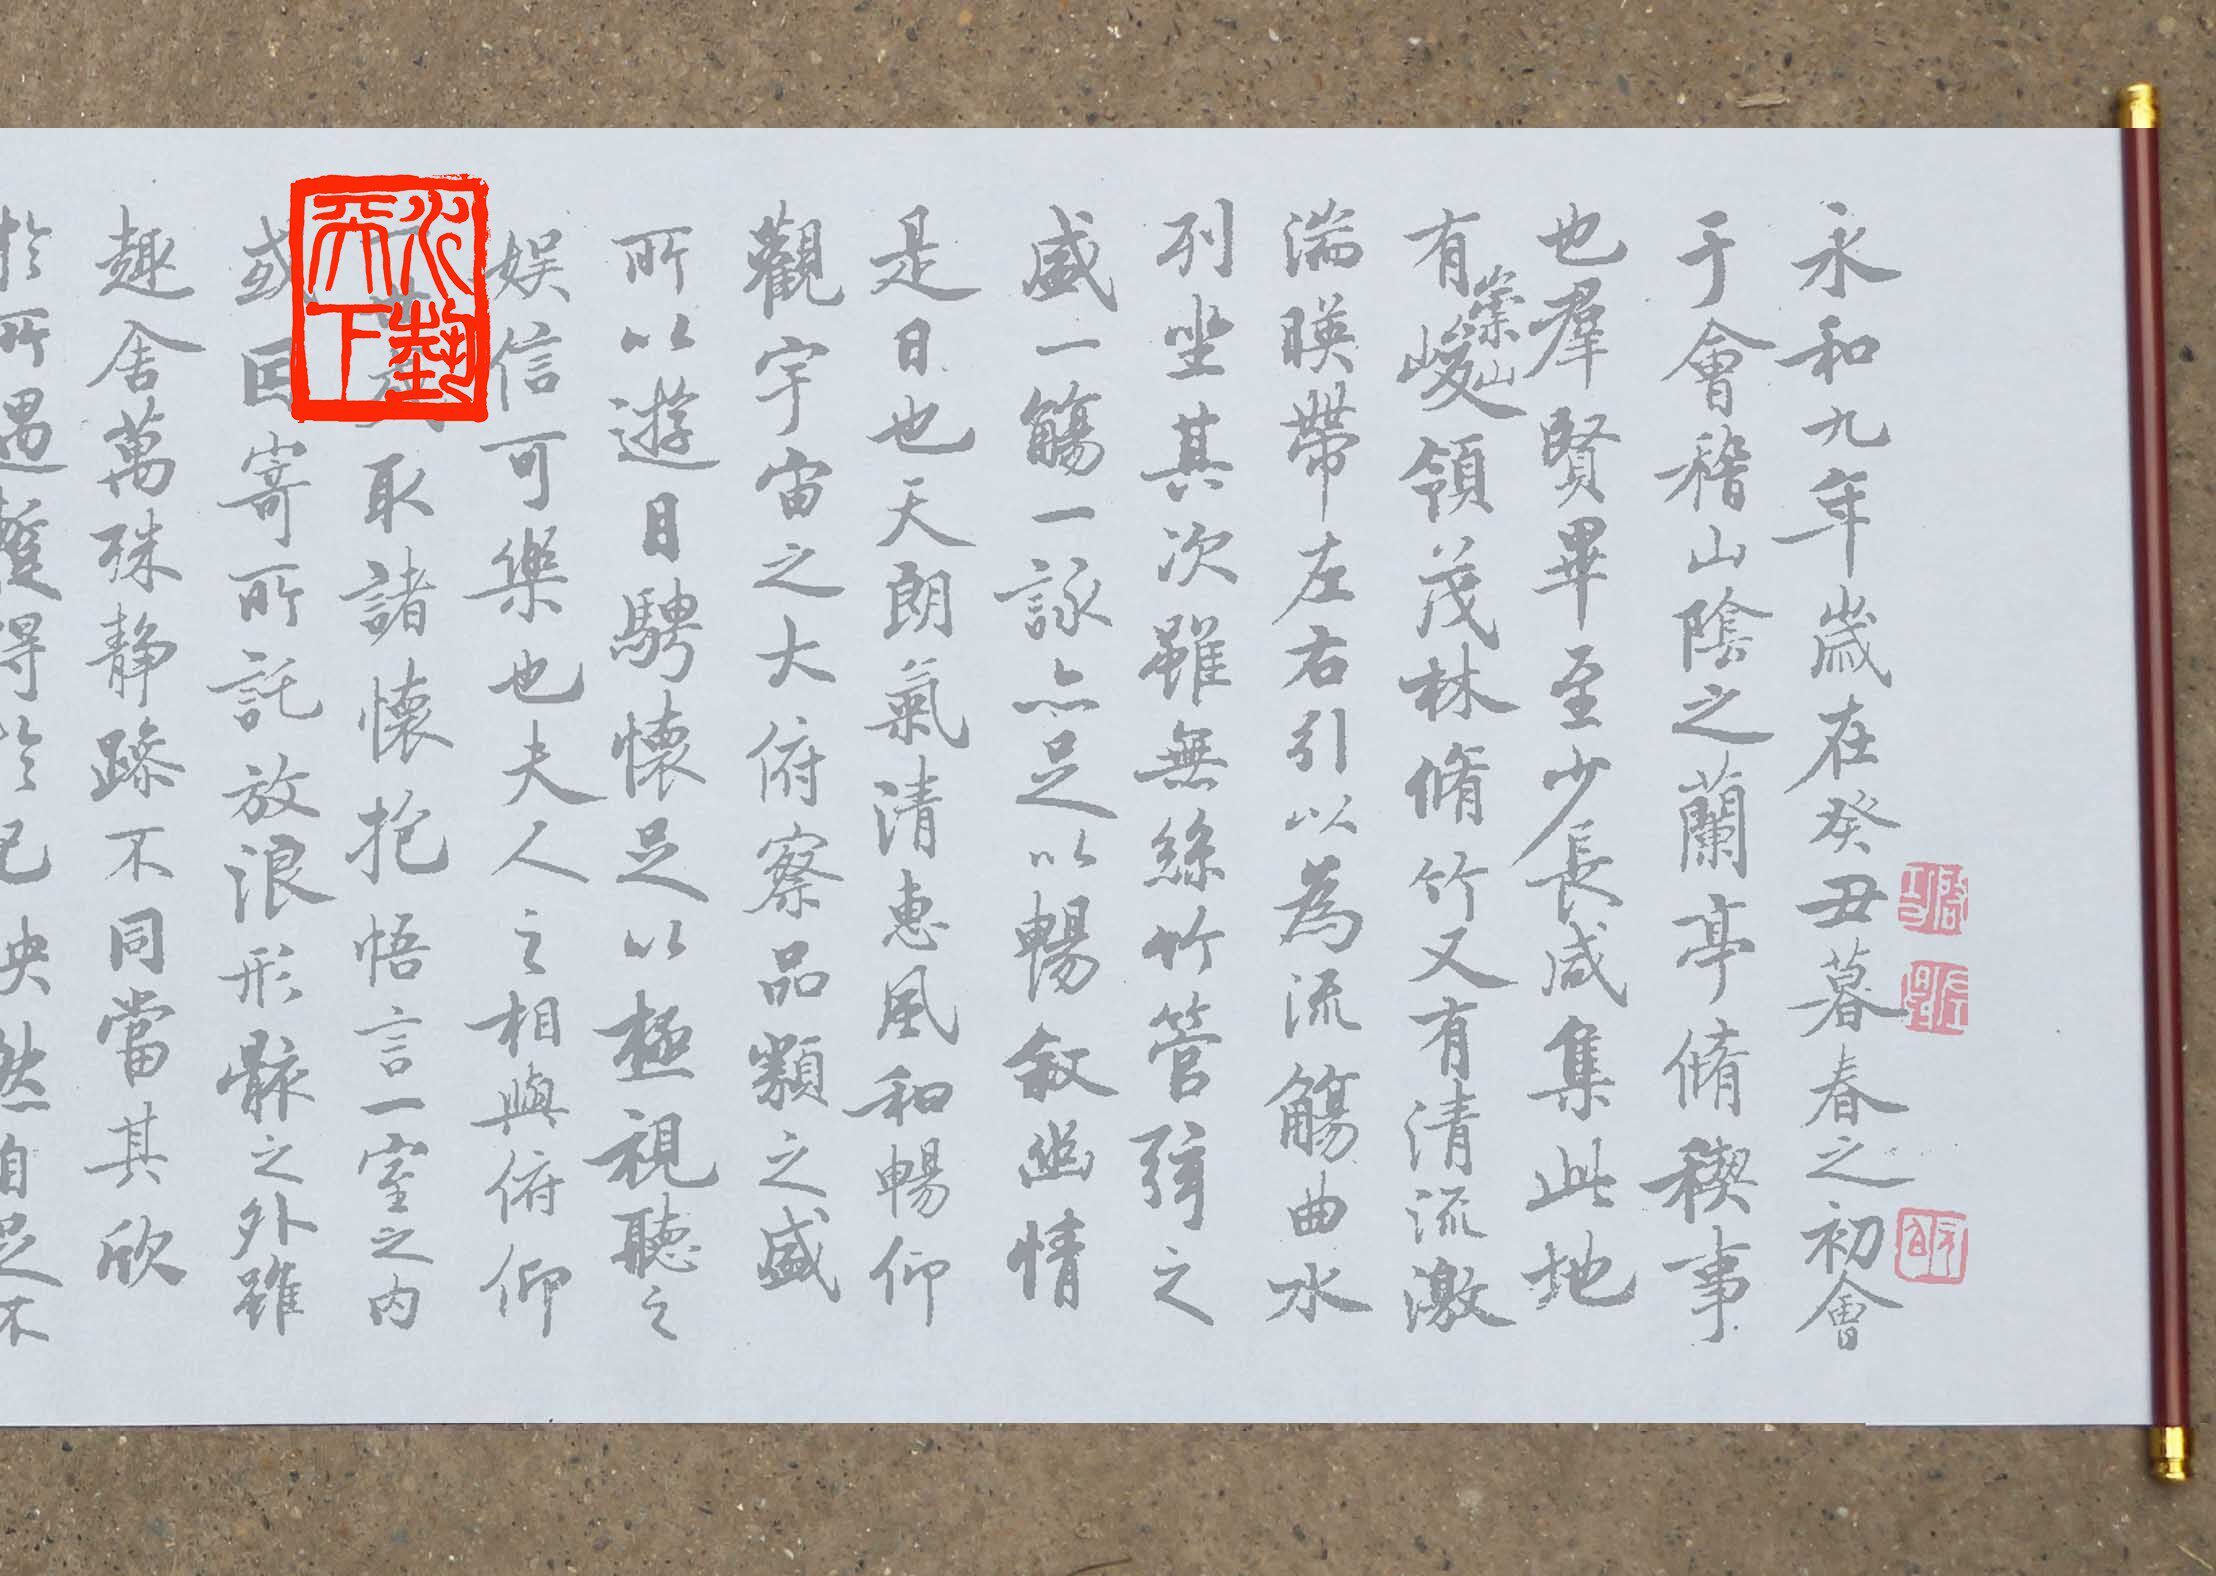 永和九年歲在癸丑暮春之初會
于會稽山陰之蘭亭脩稧事
也羣賢畢至少長咸集此地
有崇山峻領茂林脩竹又有清流激
湍暎帶左右引以為流觴曲水
列坐其次雖無絲竹管弦之
盛一觴一詠亦足以暢敘幽情
是日也天朗氣清惠風和暢仰
觀宇宙之大俯察品類之盛
所以遊目騁懷足以極視聽之
娛信可樂也夫人之相與俯仰
取諸懷抱悟言一室之內
或因寄所託放浪形骸之外雖
趣舍萬殊静躁不同當其欣
於所遇蹔得於己怏然自足不
天下